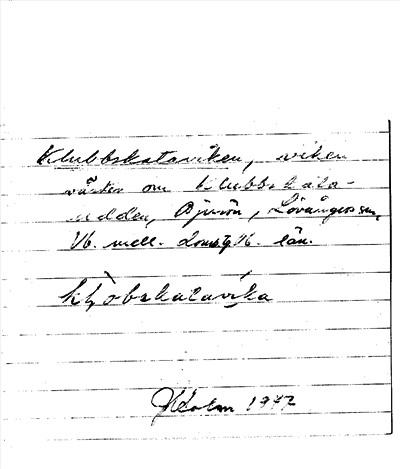 Klubbskataviken, viken
väster om Klubbskata-
udden, Bjurön, Lövångers sn,
Vb. mell. domsg V6. län.
klobskatavika
Holm 1947